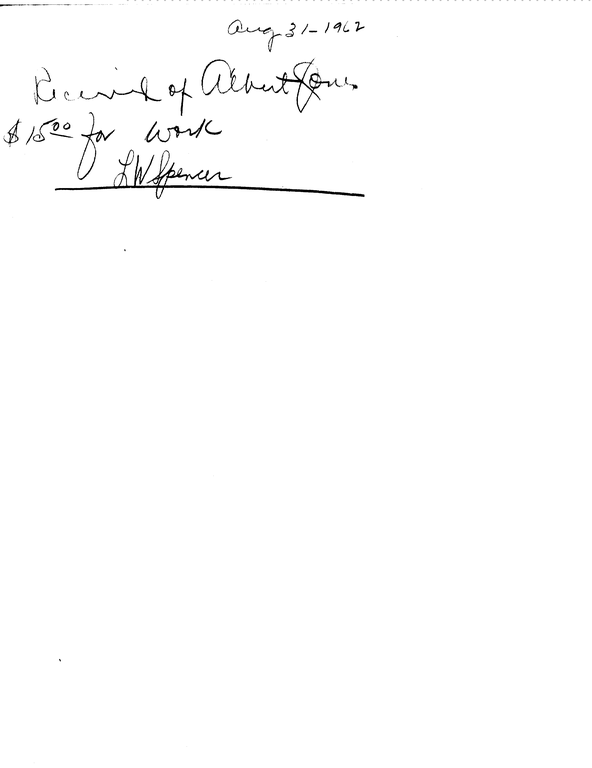 Aug 31-1962
Received of Albert Jones
$15.00 for work
L W Spencer